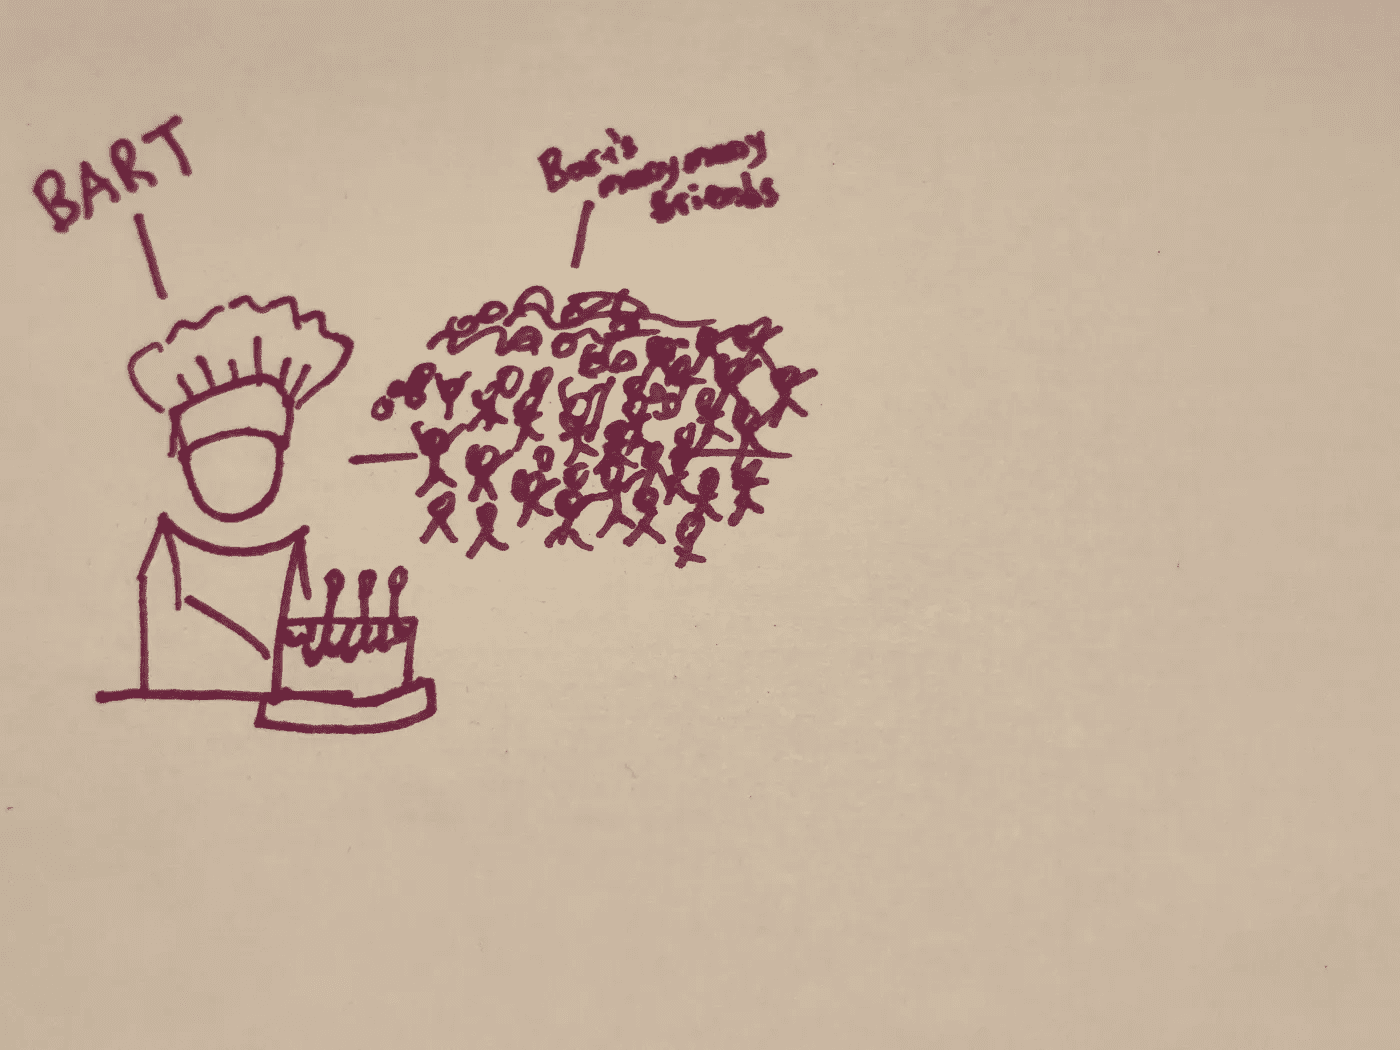 BART
Bart's
many many
friends